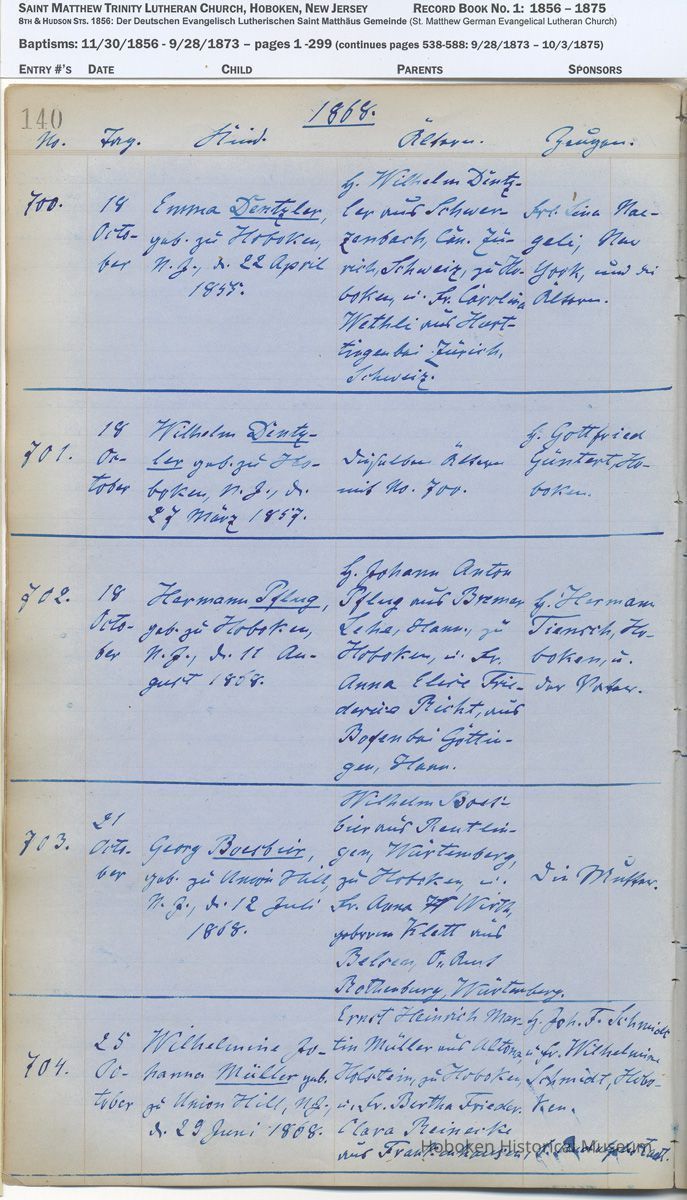 SAINT MATTHEW TRINITY LUTHERAN CHURCH, HOBOKEN, NEW JERSEY RECORD BOOK NO. 1: 1856 – 1875
8TH & HUDSON STS. 1856: Der Deutschen Evangelisch Lutherischen Saint Matthäus Gemeinde (St. Matthew German Evangelical Lutheran Church)
Baptisms: 11/30/1856 - 9/28/1873 – pages 1 -299 (continues pages 538-588: 9/28/1873 – 10/3/1875)
ENTRY #'S DATE CHILD PARENTS SPONSORS
140
1868.
No. Tag. Kind. Ältern. Zeugen.
700.
18
Octo-
ber
Emma Dentzler,
geb. zu Hoboken,
N. J., d. 22 April
1855.
H. Wilhelm Dentz-
ler aus Schwer-
zenbach, Can. Zü-
rich, Schweiz, zu Ho-
boken, u. Fr. Carolina
Wethli aus Hott-
tingen bei Zürich,
Schweiz.
Frl. Lina Nae-
geli, New
York, und die
Ältern.
701.
18
Oc-
tober
Wilhelm Dentz-
ler geb. zu Ho-
boken, N. J., d.
27 März 1857.
Dieselben Ältern
mit No. 700.
H. Gottfried
Güntert, Ho-
boken.
702.
18
Octo-
ber
Hermann Pflug,
geb. zu Hoboken,
N. J., d. 11 Au-
gust 1868.
H. Johann Anton
Pflug aus Bremer
Lehe, Hann., zu
Hoboken, u. Fr.
Anna Elise Frie-
dericke Richt, aus
Bofen bei Göttin-
gen, Hann.
H. Hermann
Tiensch, Ho-
boken, u.
der Vater.
703.
21
Octo-
ber
Georg Boesbier,
geb. zu Union Hill,
N. J., d. 12 Juli
1868.
Wilhelm Boes-
bier aus Reutlin-
gen, Würtemberg,
zu Hoboken, u.
Fr. Anna Wirth,
geboren Klett aus
Belsen, O. Amt
Rothenburg, Würtemberg.
Die Mutter.
704.
25
Oc-
tober
Wilhelmine Jo-
hanna Müller geb.
zu Union Hill, N.J.,
d. 29 Juni 1868.
Ernst Heinrich Mar-
tin Müller aus Altona,
Holstein, zu Hoboken,
u. Fr. Bertha Frieder.
Clara Reinecke
aus Frankenhausen,
H. Joh. F. Schmidt
u. Fr. Wilhelmine
Schmidt, Hobo-
ken.
Hoboken Historical Museum